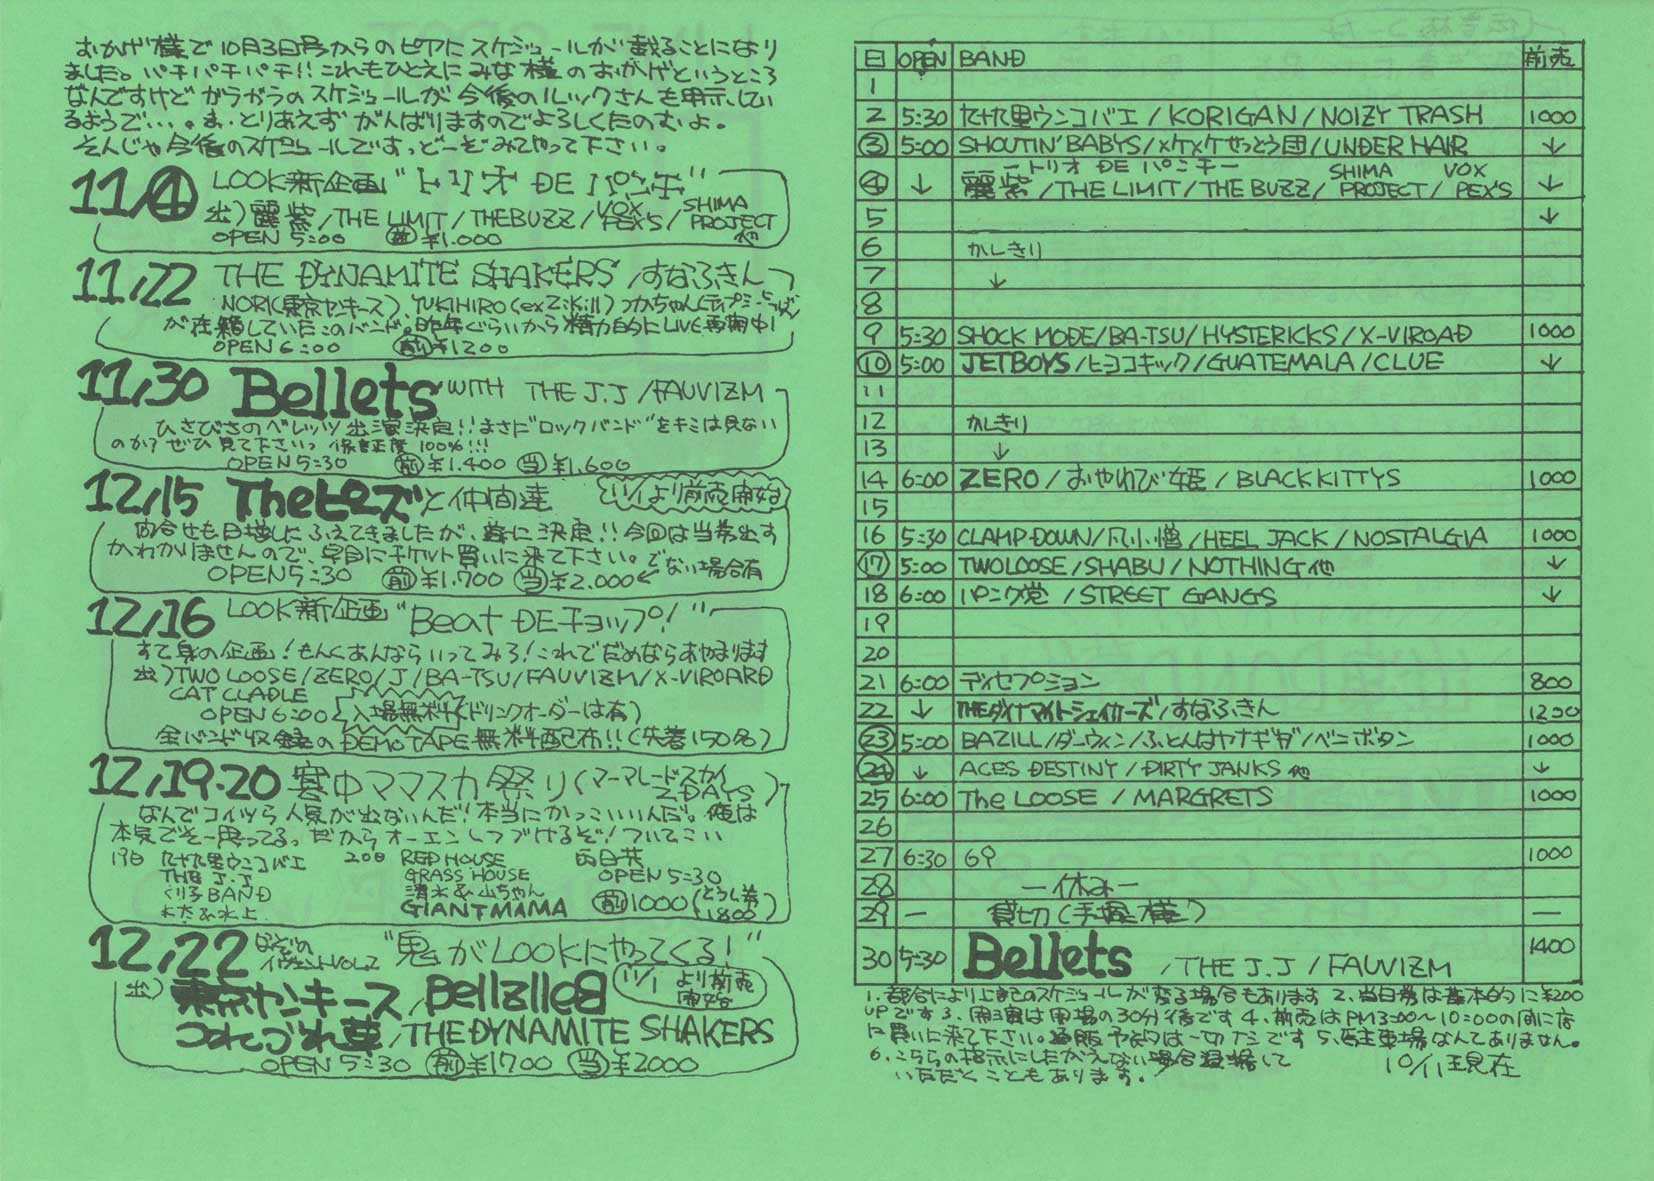 おかげ様で10月3日号からのピアにスケジュールが載ることになり
ました。パチパチパチ!! これもひとえにみな様のおかげというところ
なんですけど がらがらのスケジュールが今後のルックさんを暗示してい
るようで…。ま、とりあえずがんばりますのでよろしくたのむよ。
そんじゃ今後のスケジュールですっどーぞみてやって下さい。
11/④ LOOK新企画"トリオ DE パンチ"
出)麗紫/THE LIMIT/THE BUZZ/VOX PEX'S/SHIMA PROJECT 他
OPEN 5:00 前¥1.000
11/22 THE DYNAMITE SHAKERS/すなふきん
NORI(東京ヤンキース)、YUKIHIRO(ex Zi:Kill)つかちゃん
が在籍していたこのバンド。昨年ぐらいから精力的にLIVE再開中!
OPEN 6:00 前¥1200
11/30 Bellets WITH THE J.J/FAUVIZM
ひさびさのベレッツ出演決定!!まさに"ロックバンド"をキミは見ない
のか?ぜひ見て下さいっ 保証度 100%!!!
OPEN 5:30 前¥1.400 当¥1.600
12/15 Theピーズと仲間達 11/1より前売開始
問合せも日増しにふえてきましたが、遂に決定!!今回は当券出す
かわかりませんので、早目にチケット買いに来て下さい。
OPEN 5:30 前¥1.700 当¥2.000←でない場合有
12/16 LOOK新企画"Beat DEチョップ!"
すて身の企画!もんくあんならいってみろ!これでだめならあやまります
出)TWO LOOSE/ZERO/J/BA-TSU/FAUVIZM/X-VIROARD
CAT CLADLE
OPEN 6:00 入場無料(ドリンクオーダーは有)
全バンド収録のDEMO TAPE無料配布!!(先着150名)
12/19・20 寒中ママスカ祭り(マーマレードスカイ 2DAYS)
なんでコイツら人気が出ないんだ!本当にかっこいいんだ。俺は
本気でそー思ってる。だからオーエンしつづけるぞ!ついてこい
19日 たけた里ウンコバエ 20日 RED HOUSE 両日共
THE J.J GRASS HOUSE OPEN 5:30
くり子BAND 清水&山ちゃん 前1000(とうし券 1800)
GIANTMAMA
12/22 なぞのイヴェントVOL.2 "鬼がLOOKにやってくる!"
出)東京ヤンキース/BellzlleB 11/1より前売開始
つれづれ草/THE DYNAMITE SHAKERS
OPEN 5:30 前¥1700 当¥2000
日 OPEN BAND 前売
1
2 5:30 たけた里ウンコバエ/KORIGAN/NOIZY TRASH 1000
③ 5:00 SHOUTIN' BABYS/メケメケせっとう団/UNDER HAIR ↓
ートリオ DE パンチー
④ ↓ 麗紫/THE LIMIT/THE BUZZ/SHIMA PROJECT/VOX PEX'S ↓
5 ↓
6 かしきり
7 ↓
8
9 5:30 SHOCK MODE/BA-TSU/HYSTERICKS/X-VIROAD 1000
⑩ 5:00 JETBOYS/ヒヨコキック/GUATEMALA/CLUE ↓
11
12 かしきり
13 ↓
14 6:00 ZERO/おやゆび姫/BLACK KITTYS 1000
15
16 5:30 CLAMP DOWN/凡小僧/HEEL JACK/NOSTALGIA 1000
⑰ 5:00 TWOLOOSE/SHABU/NOTHING 他 ↓
18 6:00 パニク党/STREET GANGS ↓
19
20
21 6:00 ディセプション 800
22 ↓ THEダイナマイトシェイカーズ/すなふきん 1200
㉓ 5:00 BAZILL/ダーウィン/ふとんはヤナギダ/ベニボタン 1000
㉔ ↓ ACES DESTINY/DIRTY JANKS 他 ↓
25 6:00 The LOOSE/MARGRETS 1000
26
27 6:30 69 1000
28 ー休みー
29 ー 貸切(手塚様) ー
30 5:30 Bellets/THE J.J/FAUVIZM 1400
1、都合により上記のスケジュールが変る場合もあります 2、当日券は基本的に¥200
UPです 3、開演は開場の30分後です 4、前売はPM3:00〜10:00の間に店
に買いに来て下さい。通販、予約は一切ナシです 5、駐車場なんてありません。
6、こちらの指示にしたがえない場合退場して
いただくこともあります。 10/11現在